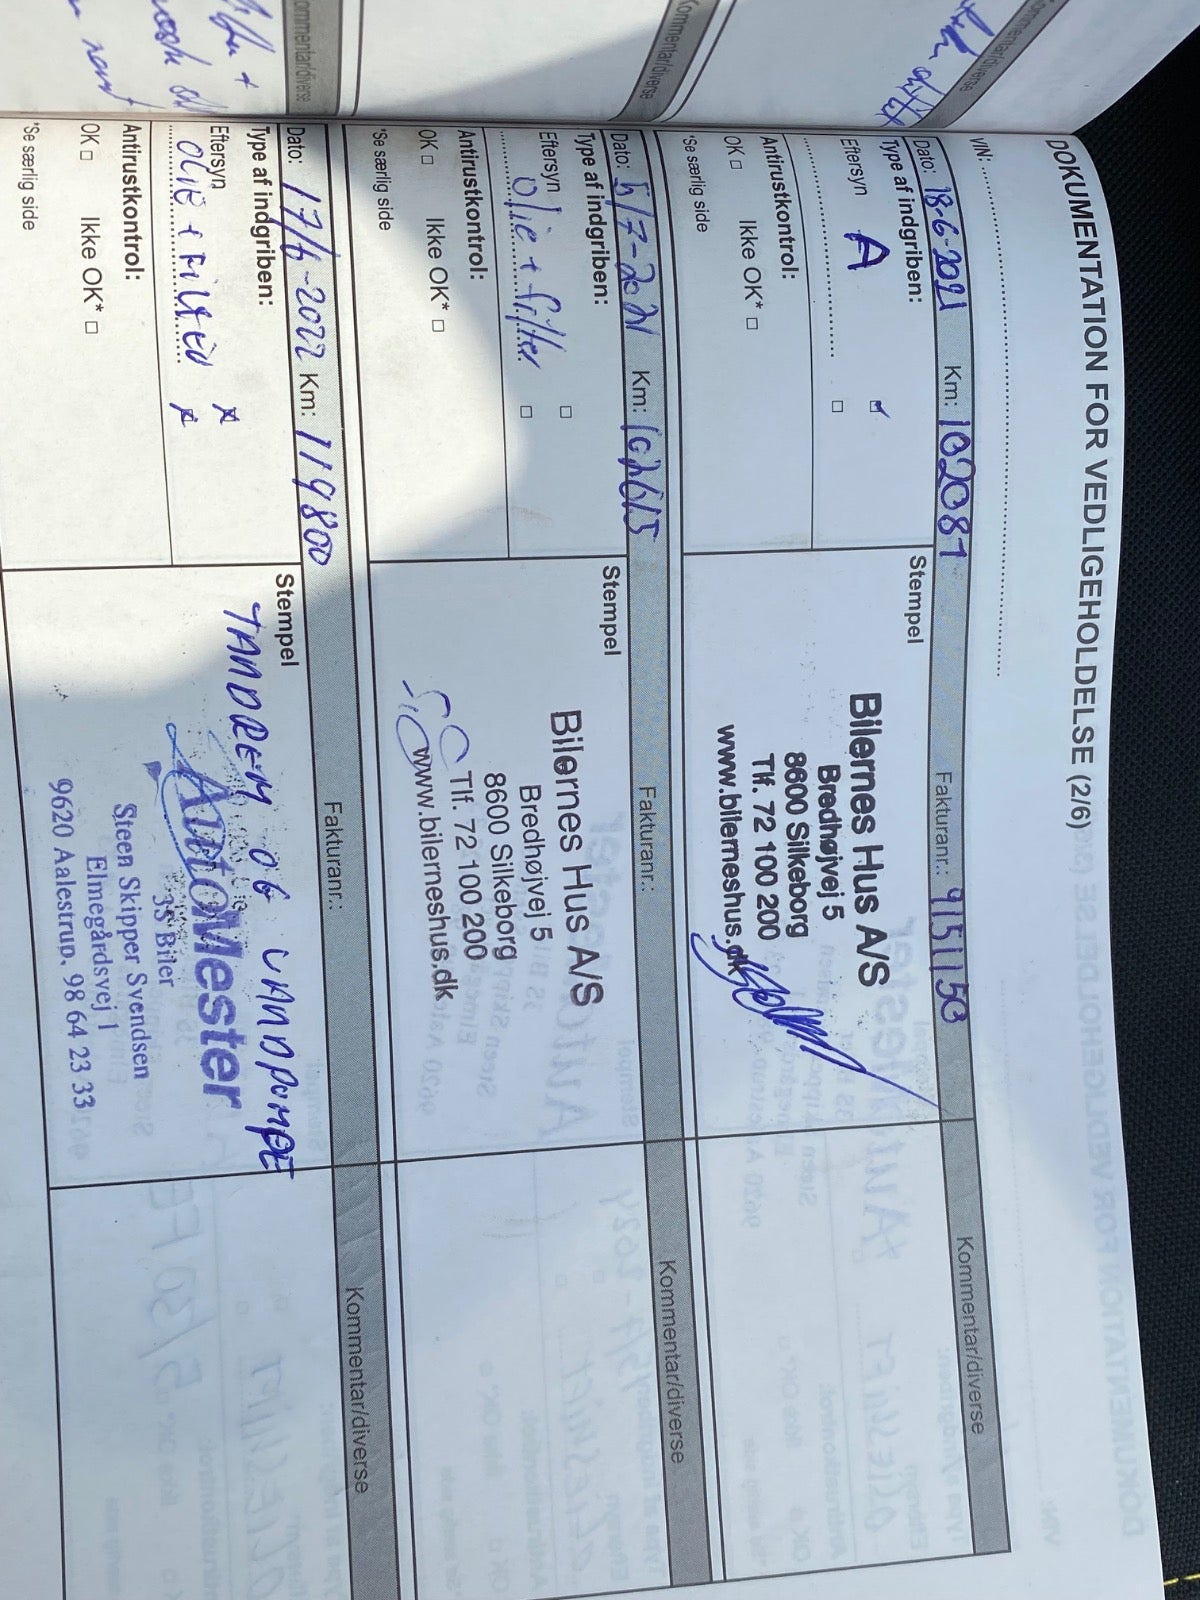 DOKUMENTATION FOR VEDLIGEHOLDELSE (2/6)
VIN:
Dato: 18-6-2021 Km: 102081 Fakturanr.: 9151153 Kommentar/diverse
Type af indgriben:
Eftersyn A
Antirustkontrol:
OK Ikke OK*
*Se særlig side
Stempel
Bilernes Hus A/S
Bredhøjvej 5
8600 Silkeborg
Tlf. 72 100 200
www.bilerneshus.dk
Dato: 5/7-2021 Km: 102615 Fakturanr.: Kommentar/diverse
Type af indgriben:
Eftersyn
Olie + filter
Antirustkontrol:
OK Ikke OK*
*Se særlig side
Stempel
Bilernes Hus A/S
Bredhøjvej 5
8600 Silkeborg
Tlf. 72 100 200
www.bilerneshus.dk
Dato: 17/6-2022 Km: 119800 Fakturanr.: Kommentar/diverse
Type af indgriben:
Eftersyn
OLIE + FILTER
Antirustkontrol:
OK Ikke OK*
*Se særlig side
Stempel
TANDREM OG VANDPUMPE
AutoMester
Biler
Steen Skipper Svendsen
Elmegårdsvej 1
9620 Aalestrup. 98 64 23 33
Kommentar/diverse
Kommentar/diverse
Kommentar/diverse